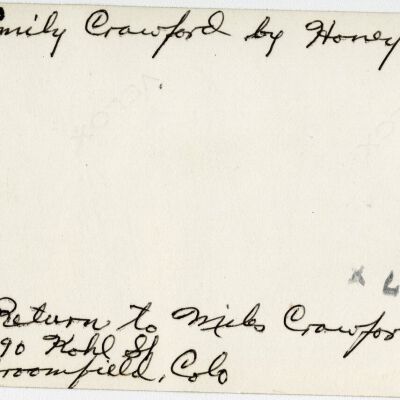 mily Crawford by Honey
x L
Return to Miles Crawfor
90 Kohl St
roomfield, Colo